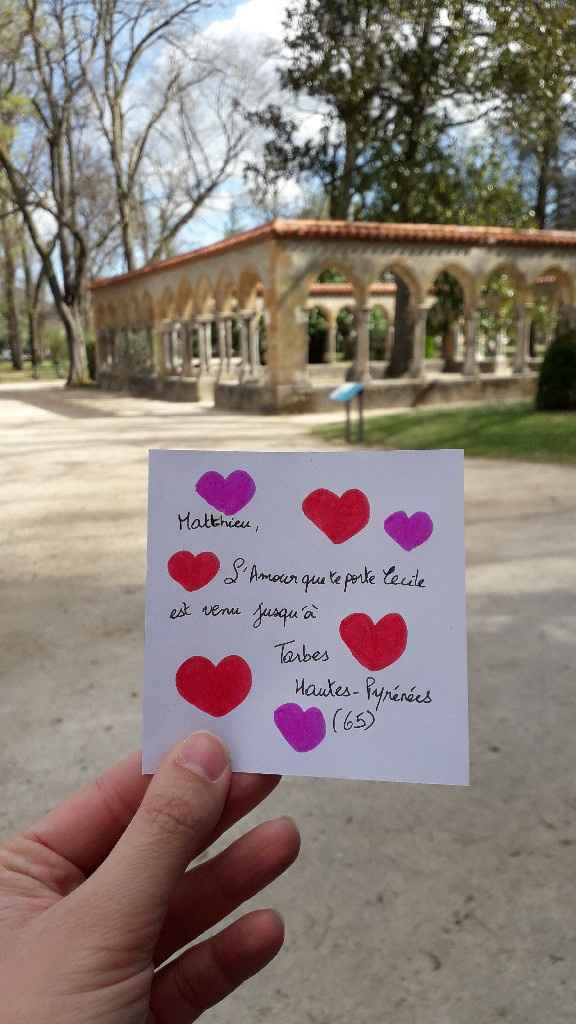 Matthieu,
L'Amour que te porte Cecile
est venu jusqu'à
Tarbes
Hautes-Pyrénées
(65)